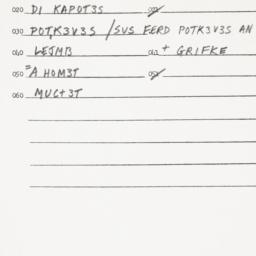 020 DI KAPOT3S 021
030 POTK3V3S /SVS FERD POTK3V3S AN
040 LEJMB 041 + GRIFKE
050 =A HOM3T 051
060 MUC+3T